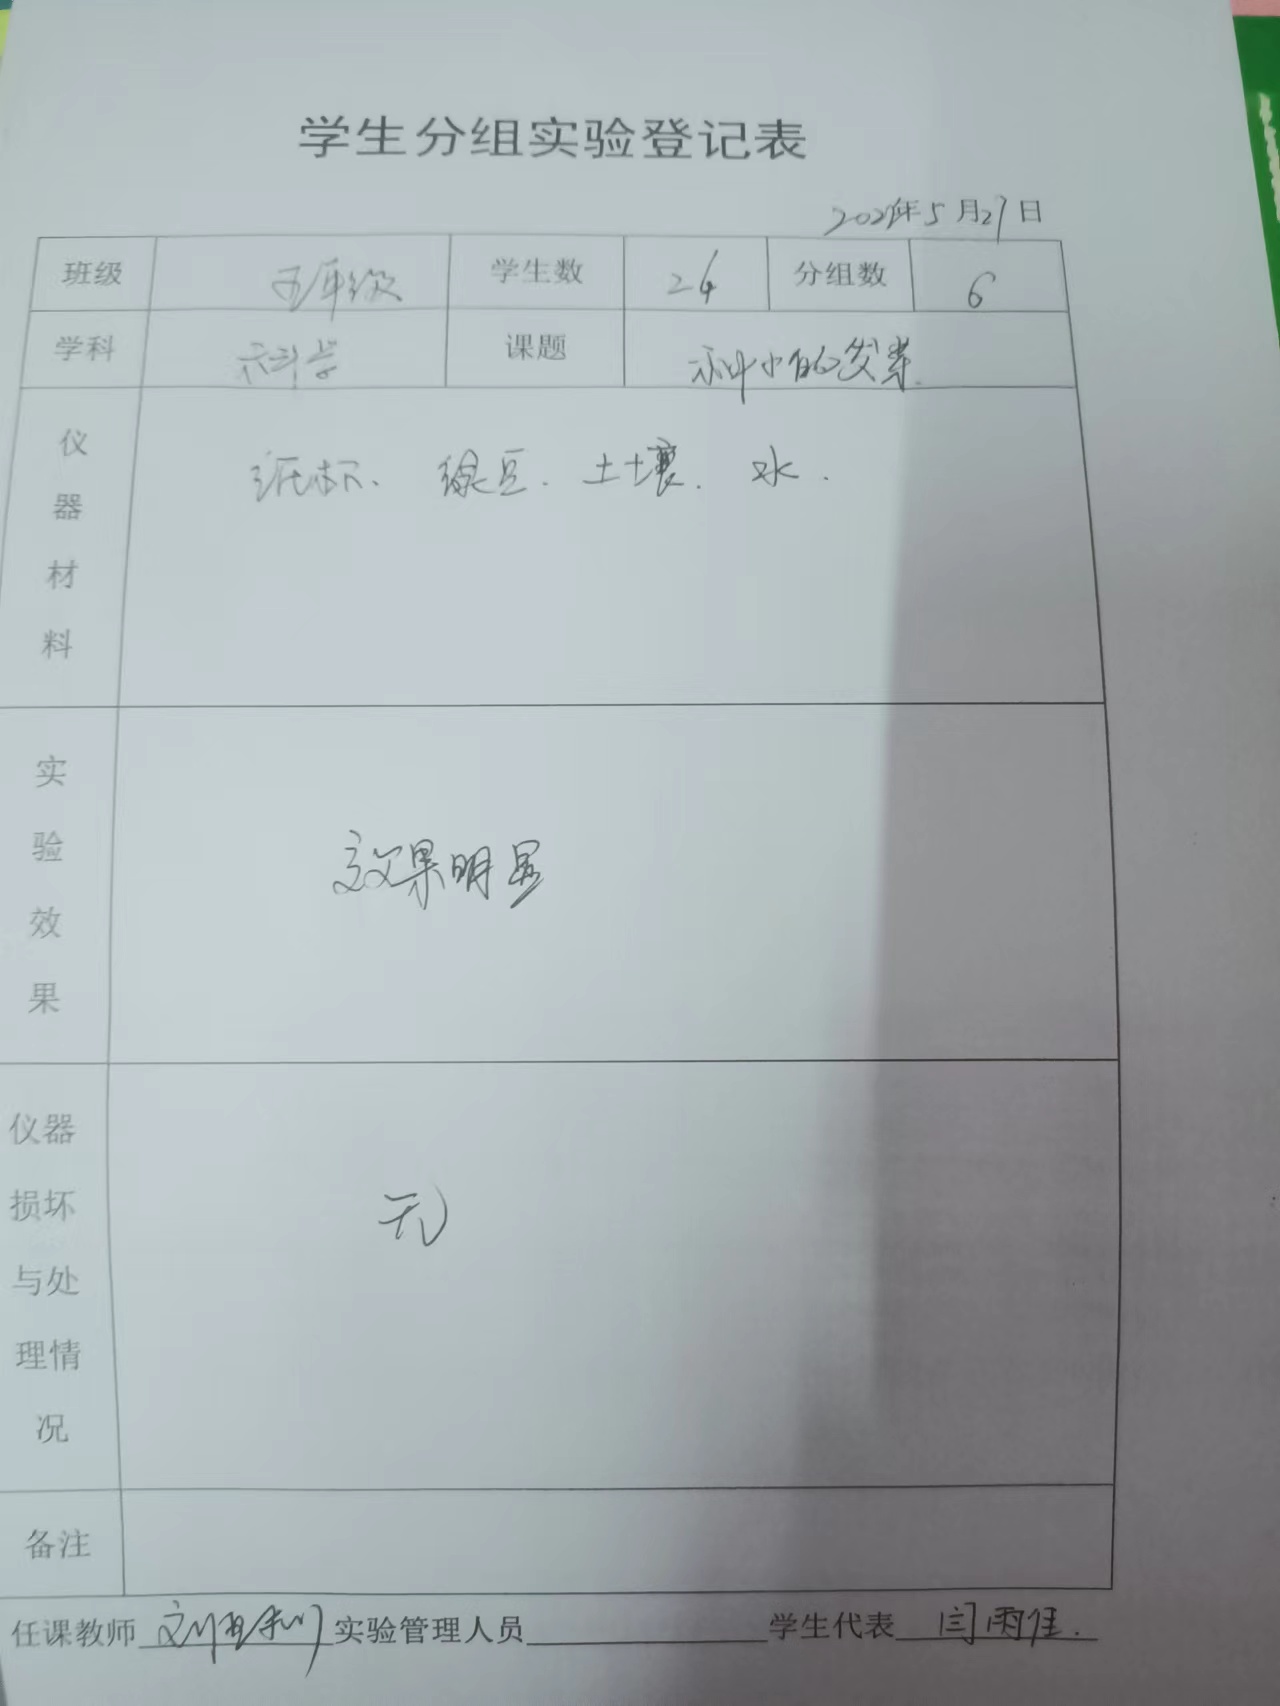 学生分组实验登记表
年5月27日
班级 五年级 学生数 24 分组数 6
学科 科学 课题 种子的发芽
仪器材料 纸杯、绿豆.土壤.水.
实验效果 效果明显
仪器损坏与处理情况 无
备注
任课教师 实验管理人员 学生代表 闫雨佳.